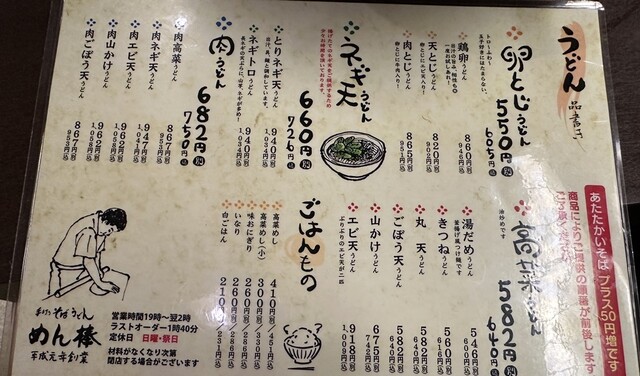 うどん
品書き
卵とじうどん
550円
605円
鶏卵うどん
860円
946円込
天とじうどん
820円
902円込
肉とじうどん
865円
951円込
ネギ天うどん
660円
726円
とりネギ天うどん
940円
1,034円込
ネギトロうどん
940円
1,034円込
肉うどん
682円
750円
肉高菜うどん
867円
953円込
肉ネギ天うどん
947円
1,041円込
肉エビ天うどん
962円
1,058円込
肉山かけうどん
962円
1,058円込
肉ごぼう天うどん
867円
953円込
あたたかいそば プラス50円増です
商品によりご提供の順番が前後します
ご了承ください
高菜うどん
油炒めです
582円
640円
湯だめうどん
釜揚げ風つけ麺です
きつねうどん
丸天うどん
ごぼう天うどん
山かけうどん
エビ天うどん
ぷりぷりのエビ天が二匹
582
582
582
675
ごはんもの
高菜めし
410円/451円
高菜めし(小)
300円
味おにぎり
260円/286円
いなり
260円/286円
白ごはん
210円
手打ち そば うどん
めん棒
平成元年創業
営業時間19時〜翌2時
ラストオーダー1時40分
定休日 日曜・祭日
材料がなくなり次第
閉店する場合がございます